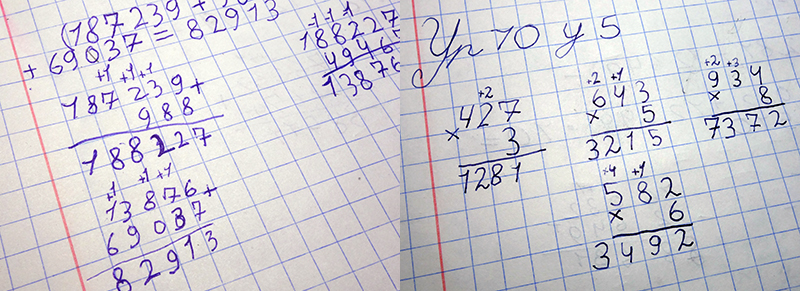 (187239+
+69037=82913
+1 +1+1
187239+
988
188227
+1 +1+1
13876+
69037
82913
188227
13876
Ур у 5
+2
427
× 3
1281
+2 +1
643
× 5
3215
+2 +3
934
× 8
7372
+4 +1
582
× 6
3492